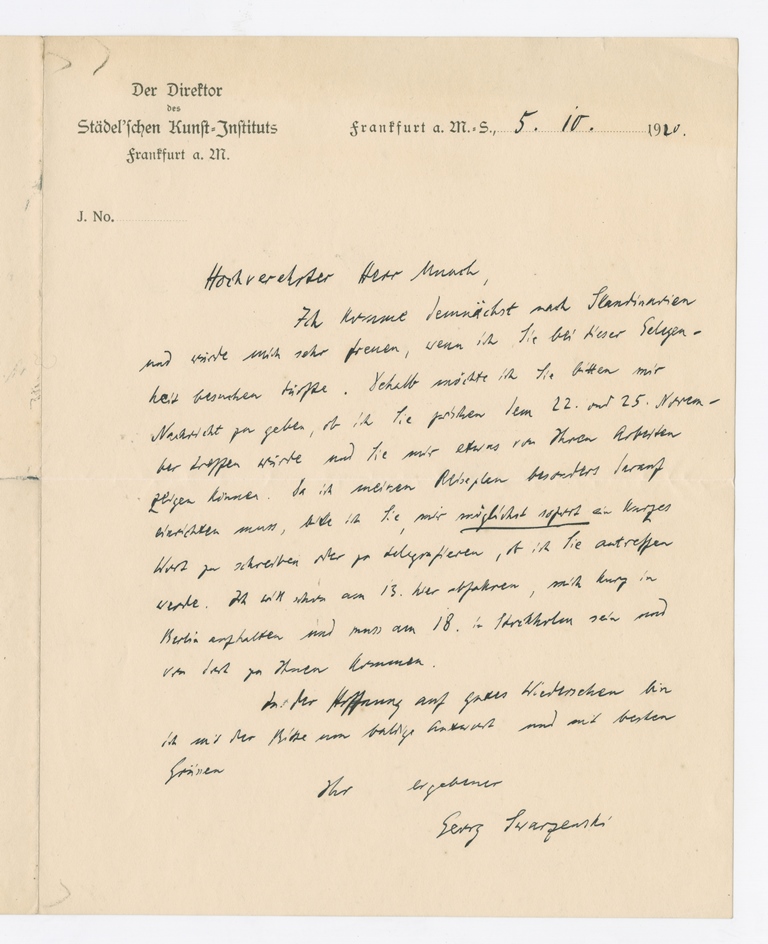 Der Direktor
des
Städel'schen Kunst-Instituts
Frankfurt a. M.
Frankfurt a. M.-S., 5. 10. 1920.
J. No.
Hochverehrter Herr Munch,
Ich komme demnächst nach Skandinavien
und würde mich sehr freuen, wenn ich Sie bei dieser Gelegen-
heit besuchen dürfte. Dehalb möchte ich Sie bitten mir
Nachricht zu geben, ob ich Sie zwischen dem 22. und 25. Novem-
ber treffen würde und Sie mir etwas von Ihren Arbeiten
zeigen können. Da ich meinen Reiseplan besonders darauf
einrichten muss, bitte ich Sie, mir möglichst sofort ein kurzes
Wort zu schreiben oder zu telegrafieren, ob ich Sie antreffen
werde. Ich will schon am 13. hier abfahren, mich kurz in
Berlin aufhalten und muss am 18. in Stockholm sein und
von dort zu Ihnen kommen.
In der Hoffnung auf gutes Wiedersehen bin
ich mit der Bitte um baldige Antwort und mit besten
Grüssen
Ihr ergebener
Georg Swarzenski